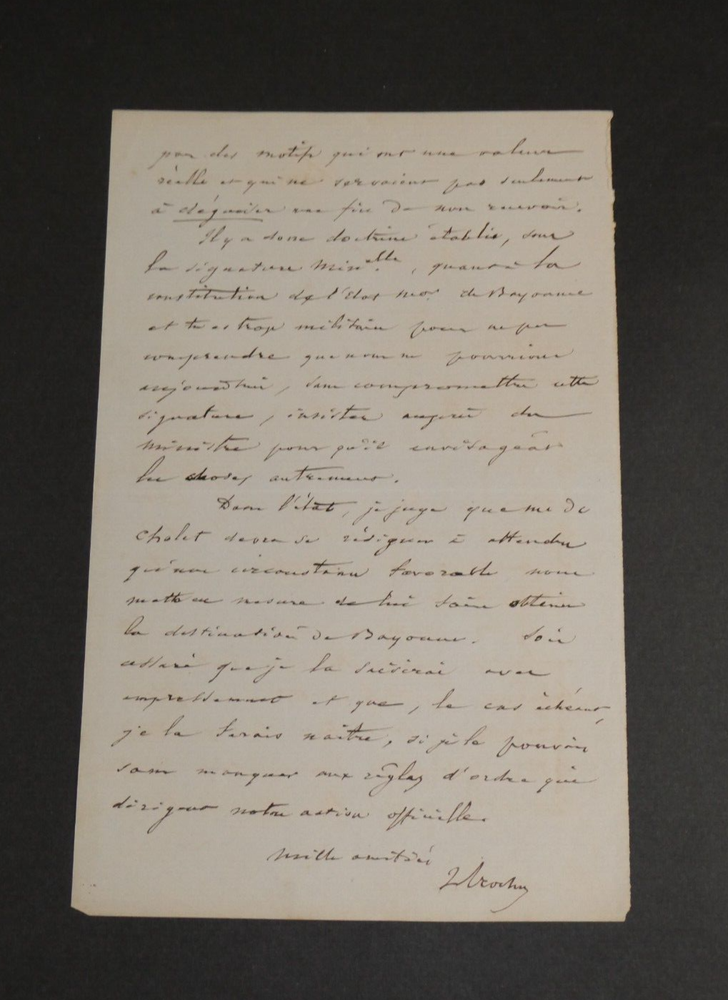 par des motifs qui ont une valeur
réelle et qui ne servaient pas seulement
à déguiser une fin de non recevoir.
Il y a donc doctrine établie, sous
la signature Min.elle, quant à la
constitution de l'Etat mor. de Bayonne
et tu es trop militaire pour ne pas
comprendre que nous ne pourrions
aujourd'hui, sans compromettre cette
signature, insister auprès du
ministre pour qu'il envisageât
les choses autrement.
Dans l'état, je juge que Mr de
Cholet devra se résigner à attendre
qu'une circonstance favorable nous
mette en mesure de lui faire obtenir
la destination de Bayonne. Sois
assuré que je la saisirai avec
empressement et que, le cas échéant,
je la ferais naître, si je le pouvais
sans manquer aux règles d'ordre qui
dirigent notre action officielle.
Mille amitiés
Trochu